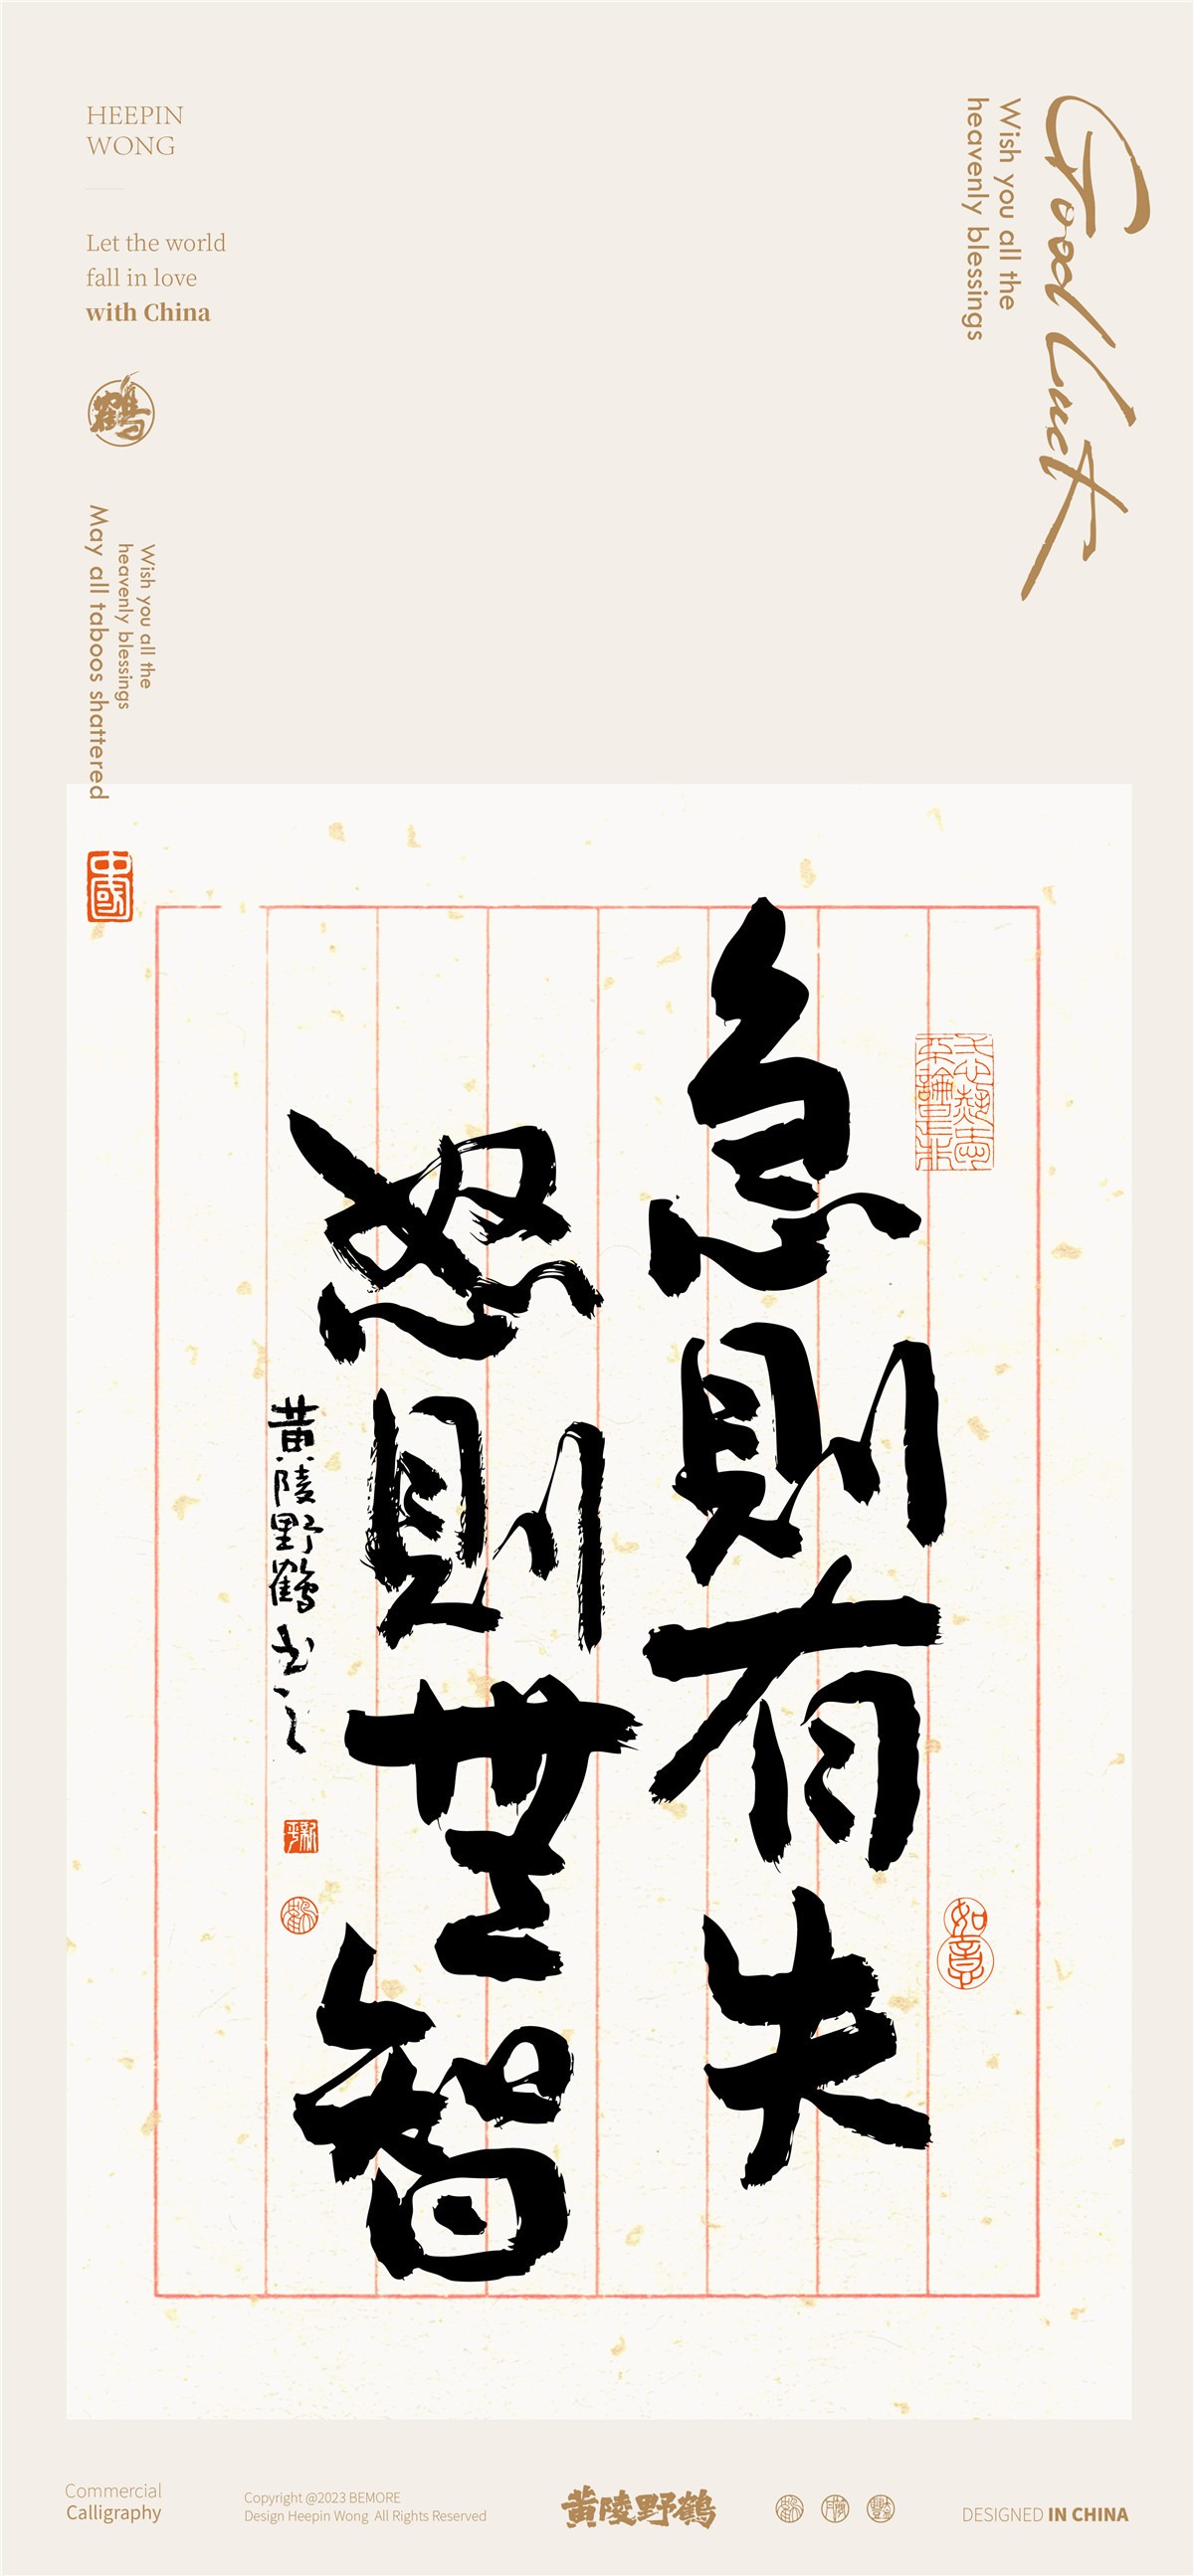 HEEPIN
WONG
Let the world
fall in love
with China
鶴
Good Luck
Wish you all the
heavenly blessings
Wish you all the
heavenly blessings
May all taboos shattered
中國
急則有失
怒則無智
黄陵野鶴书之
新平
如意
Commercial
Calligraphy
Copyright @2023 BEMORE
Design Heepin Wong All Rights Reserved
黄陵野鶴
DESIGNED IN CHINA